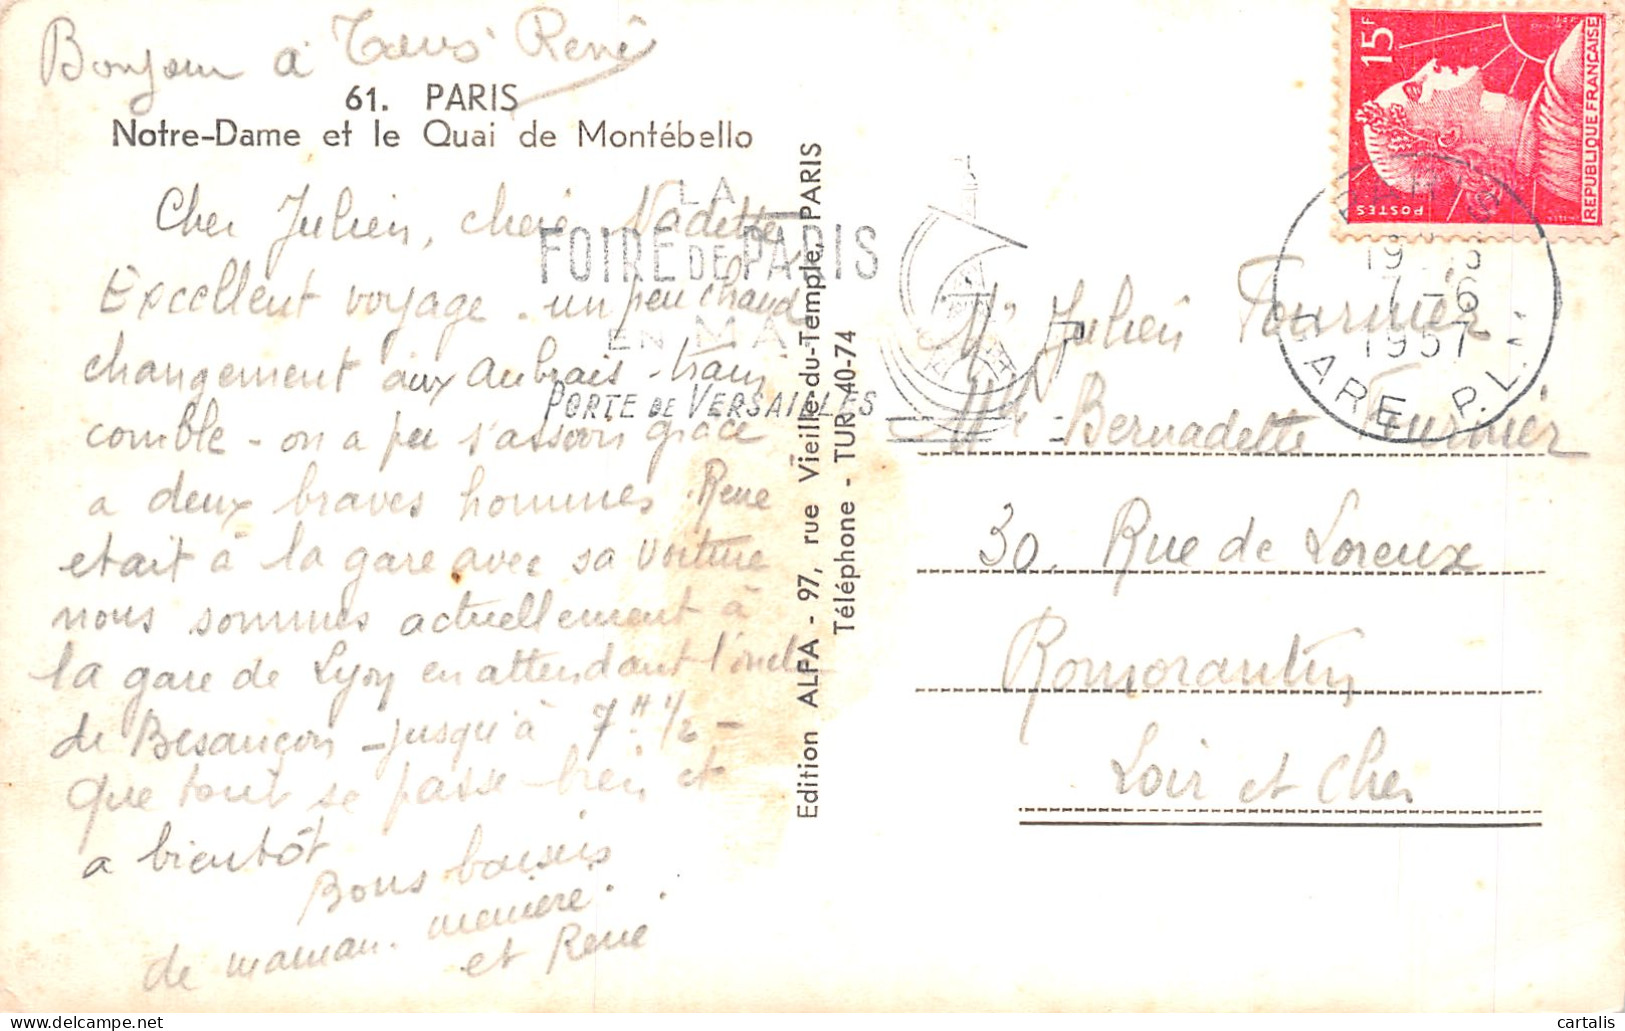 Bonjour à Tous René
61. PARIS
Notre-Dame et le Quai de Montébello
Cher Julien, chère Nadette
Excellent voyage - un peu chaud
changement aux Aubrais - train
comble - on a pu s'assoir grace
a deux braves hommes. Rene
etait à la gare avec sa voiture
nous sommes actuellement à
la gare de Lyon en attendant l'oncle
de Besançon - jusqu'à 7H 1/2 -
que tout se passe bien et
a bientôt
Bons baisers
de maman. memere.
et Rene
LA
FOIRE DE PARIS
EN MAI
PORTE DE VERSAILLES
Edition ALFA - 97, rue Vieille-du-Temple, PARIS
Téléphone - TUR 40-74
15F
POSTES
REPUBLIQUE FRANÇAISE
PARIS
7-6
1957
GARE P.L.
Mr Julien Fournier
Mlle Bernadette Fournier
30, Rue de Loreux
Romorantin
Loir et Cher
cartalis